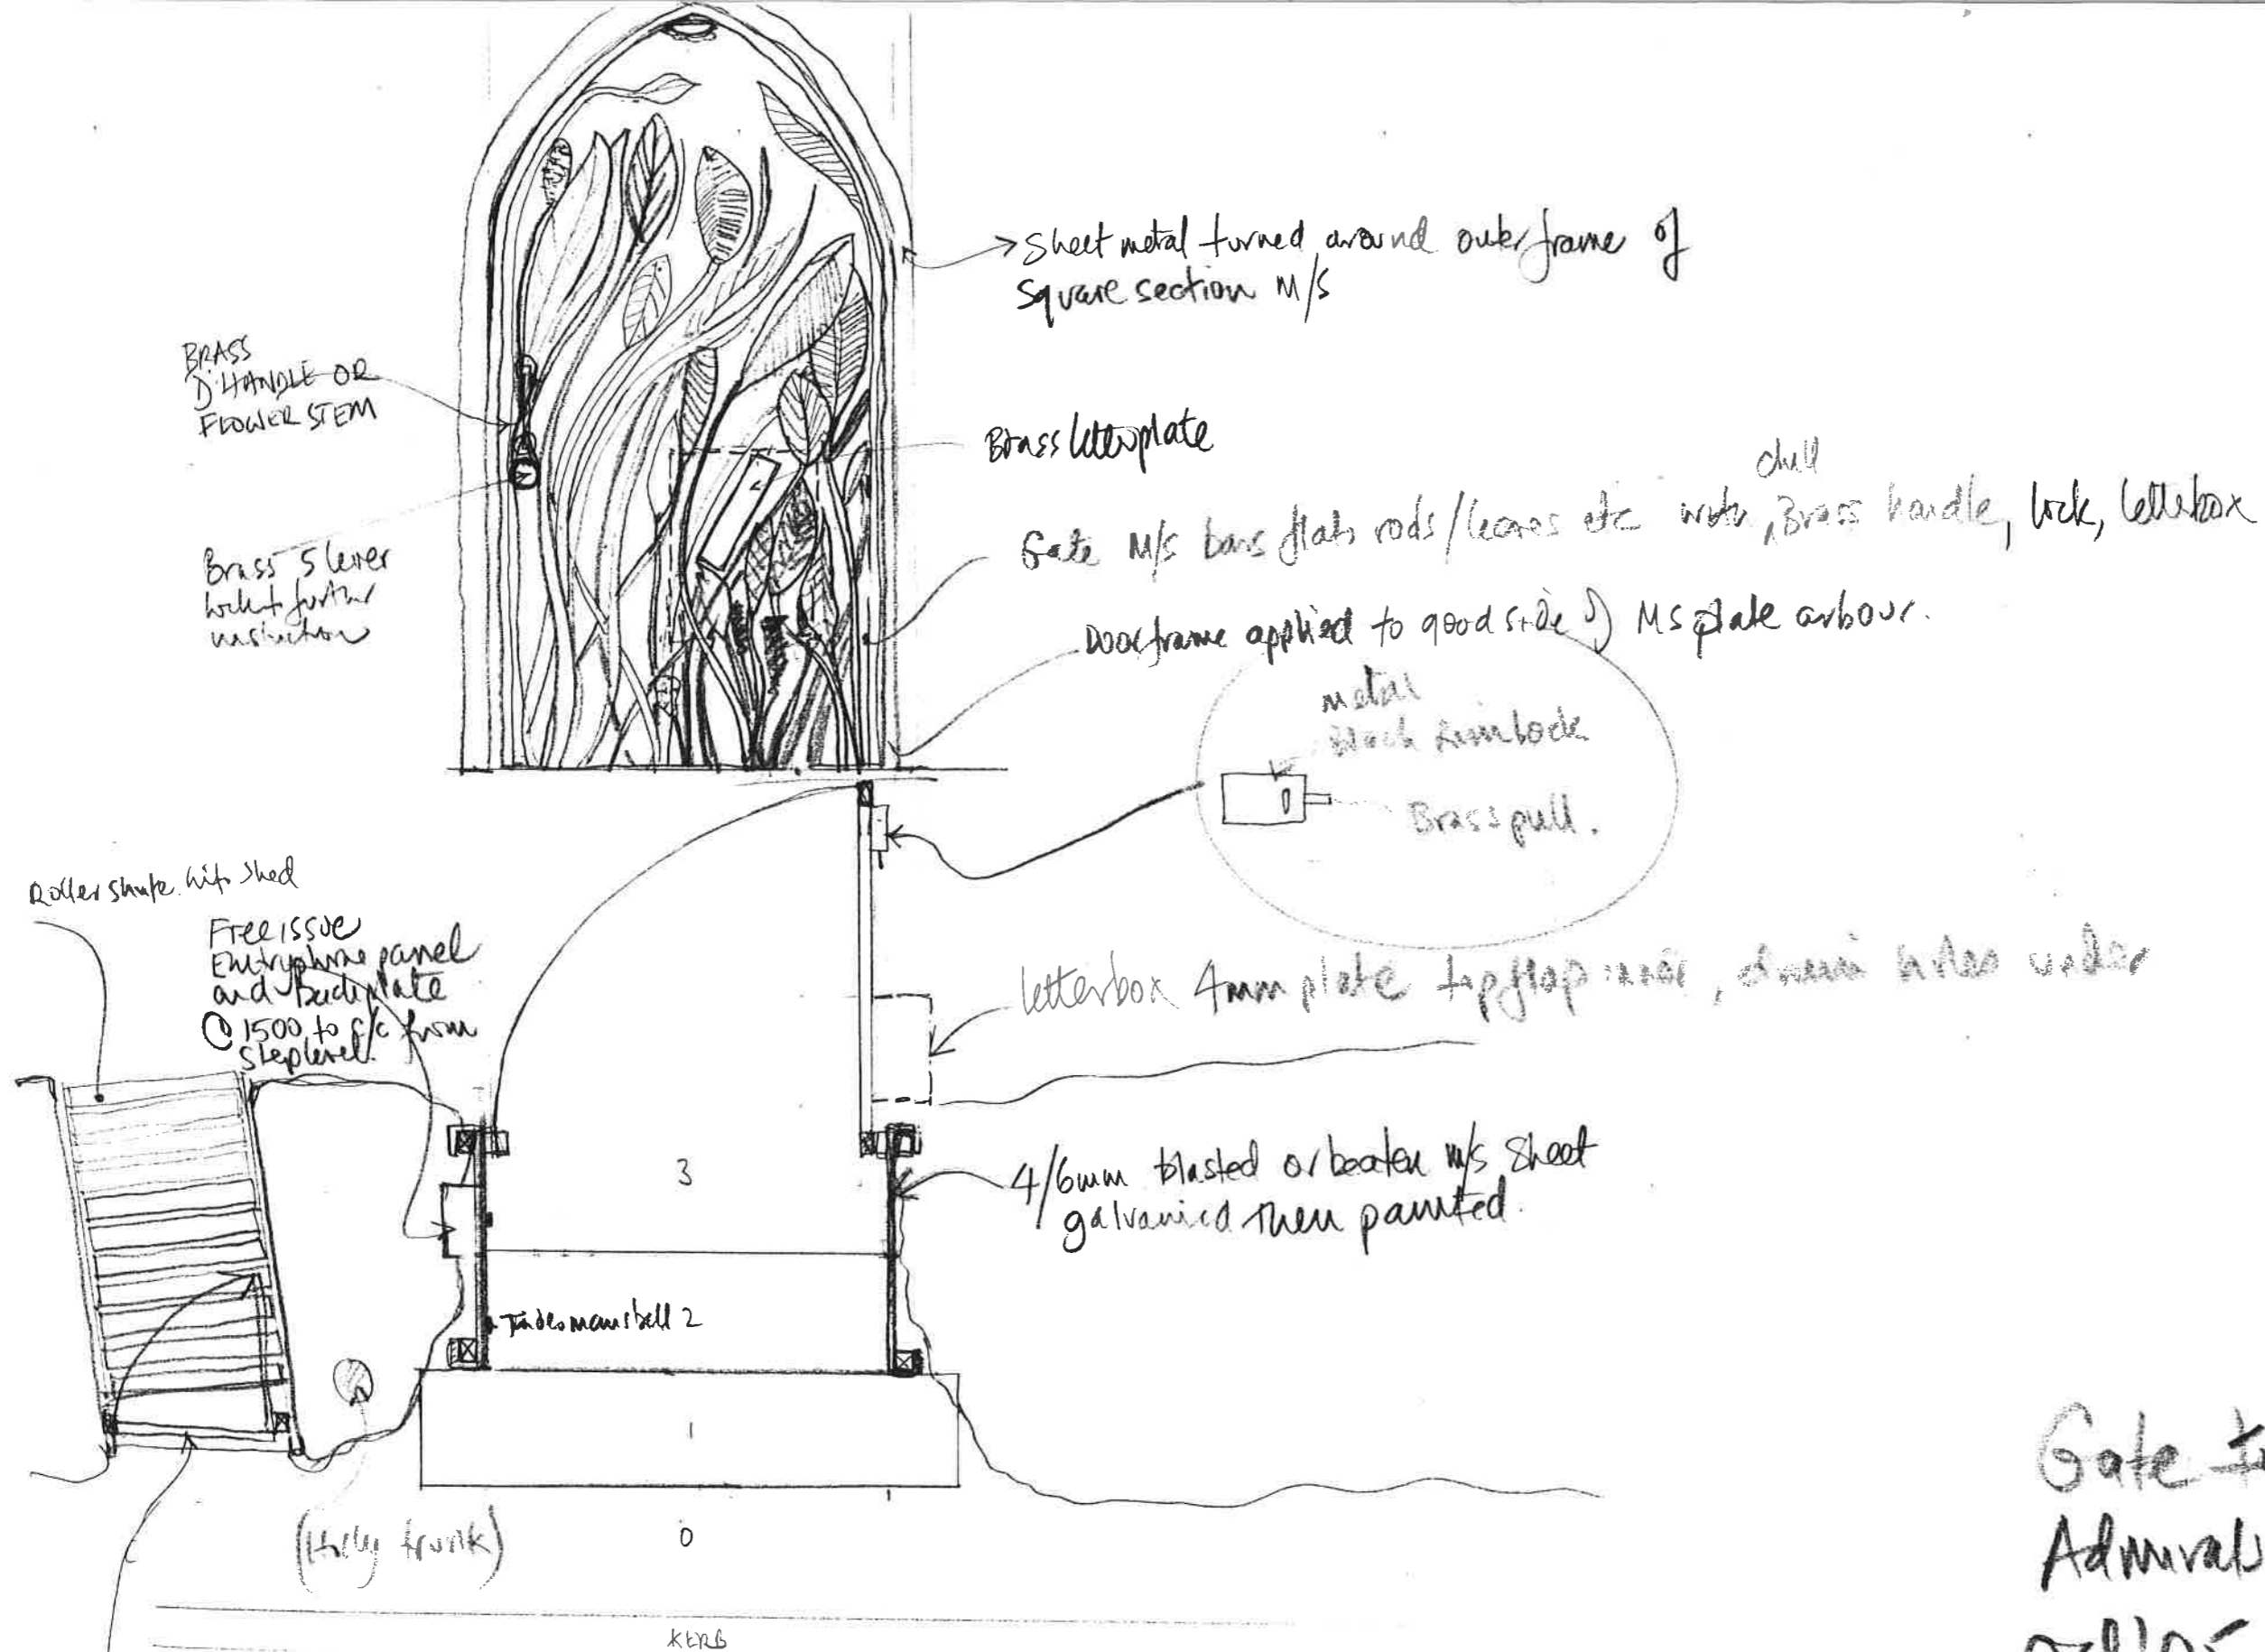 Sheet metal turned around outer frame of
square section M/S
BRASS
D'HANDLE OR
FLOWER STEM
Brass letterplate
dull
Gate M/S bars flats rods/leaves etc with Brass handle, lock, letterbox
Brass 5 lever
lock to further
instruction
Doorframe applied to good side of MS plate arbour.
metal
Black rimlock
Brass pull.
Roller shutter
shed
Free issue
Entryphone panel
and Backplate
@ 1500 to c/c from
step level.
letterbox 4mm plate top flap, drain holes under
3
4/6mm blasted or beaten m/s sheet
galvanised then painted.
Tradesmans bell 2
1
(Holly trunk)
0
KERB
Gate
Admirals